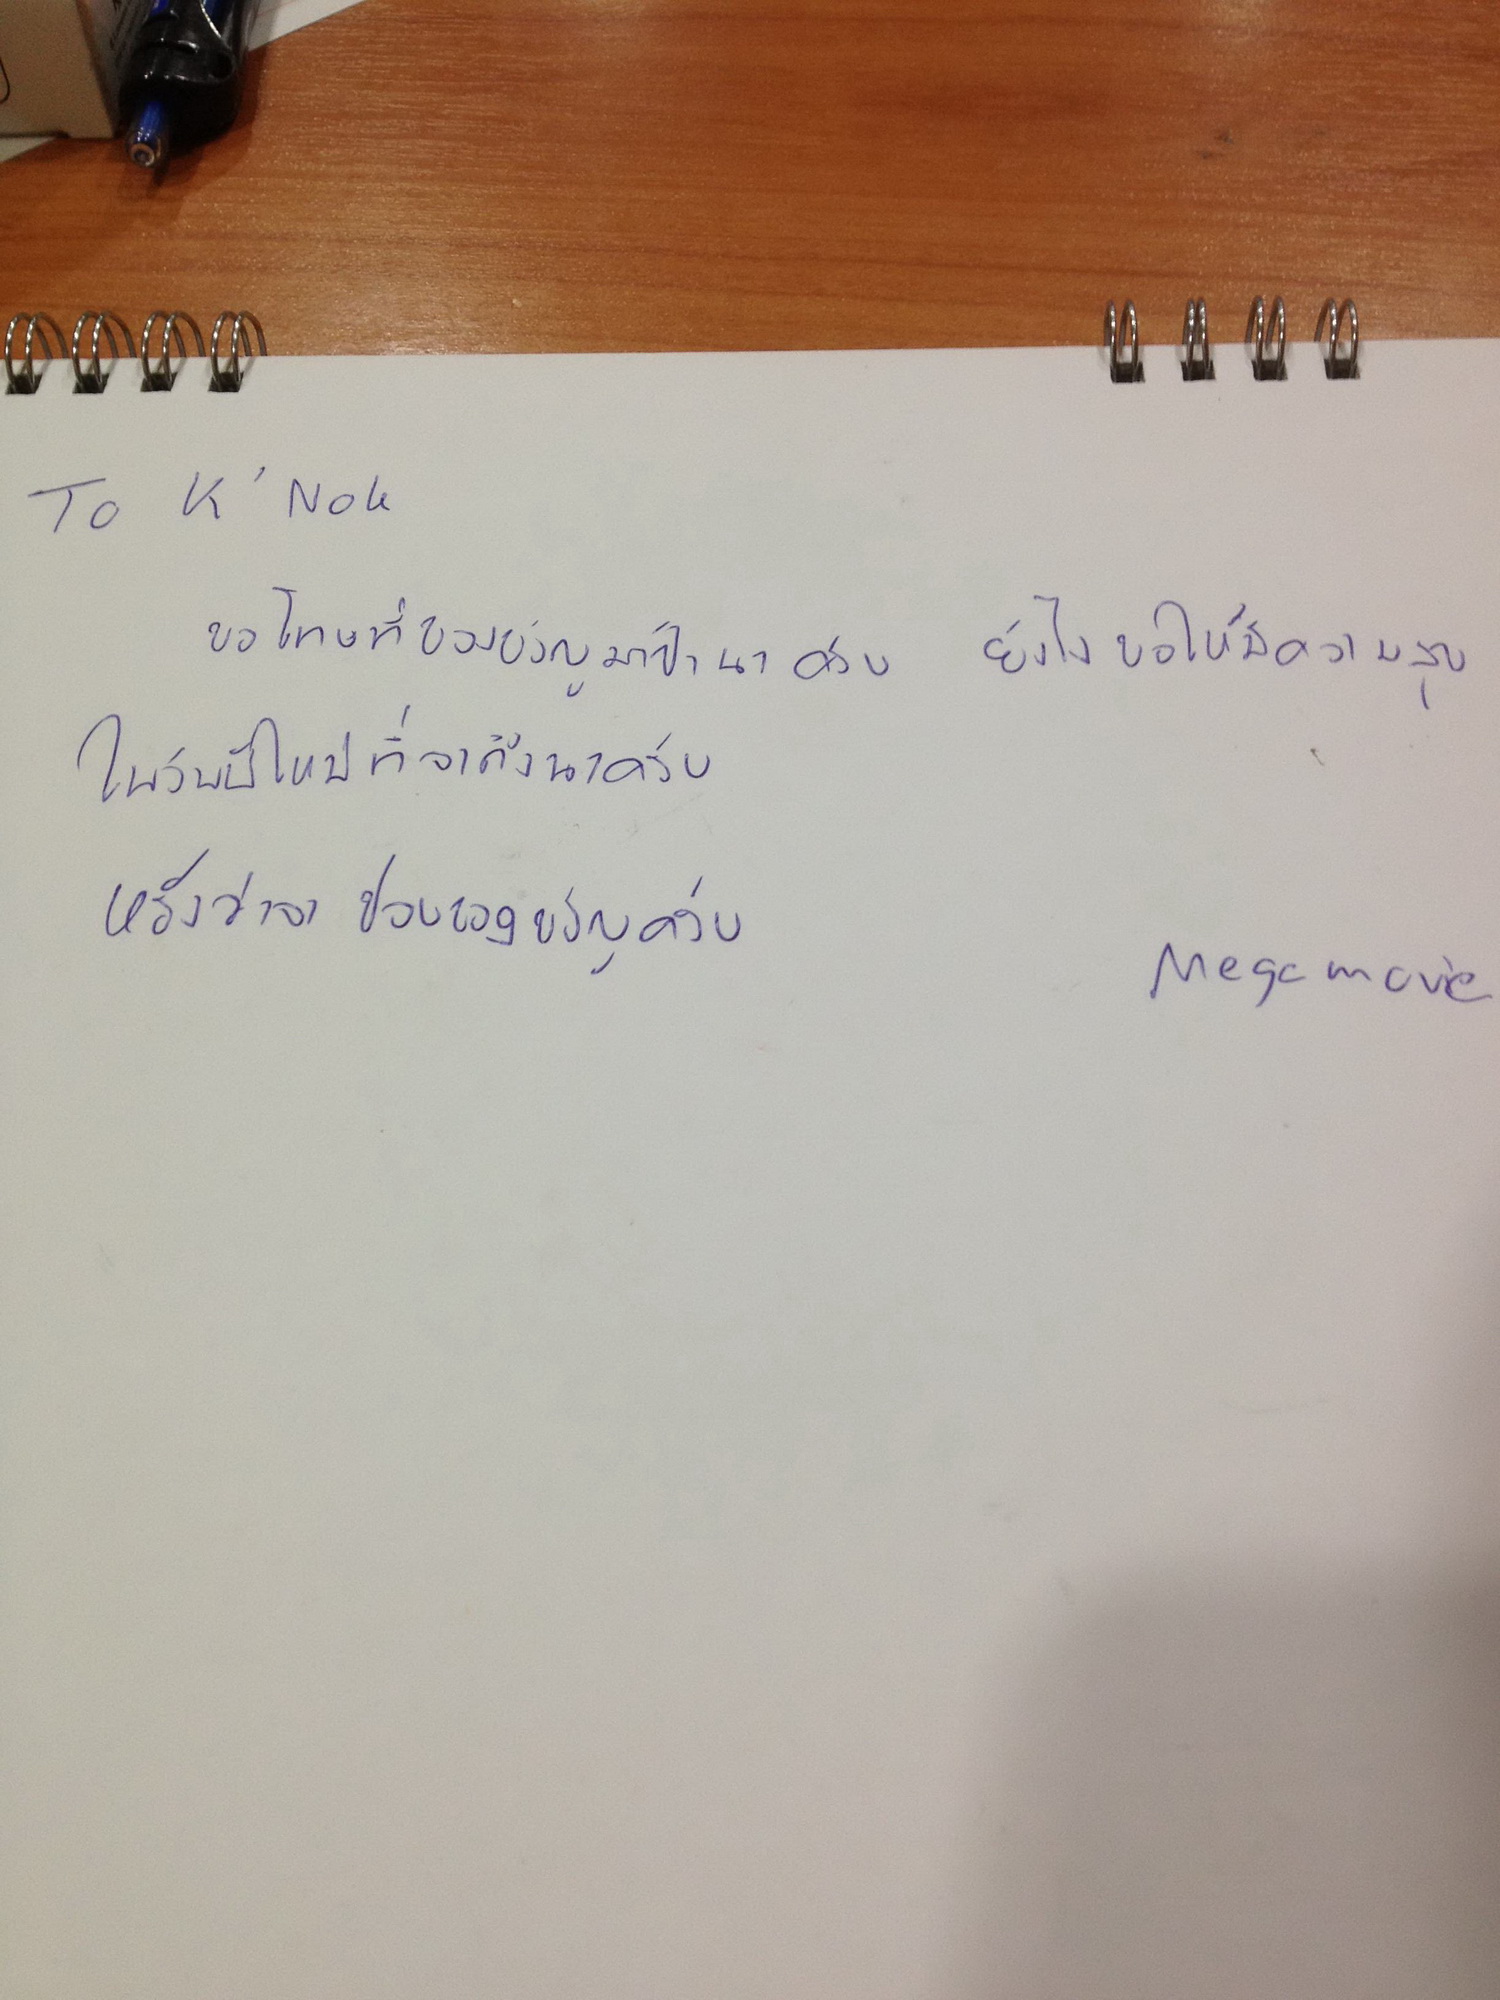 To K' Nok
ขอโทษที่ของขวัญมาช้านาครับ ยังไงขอให้มีความสุข
ในวันปีใหม่ที่จาถึงนาครับ
หวังว่าจาชอบของขวัญครับ
Megamovie